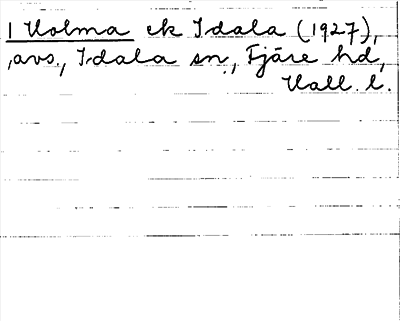 1 Holma ek Idala (1927),
,avs., Idala sn., Fjäre hd,
Hall. l.